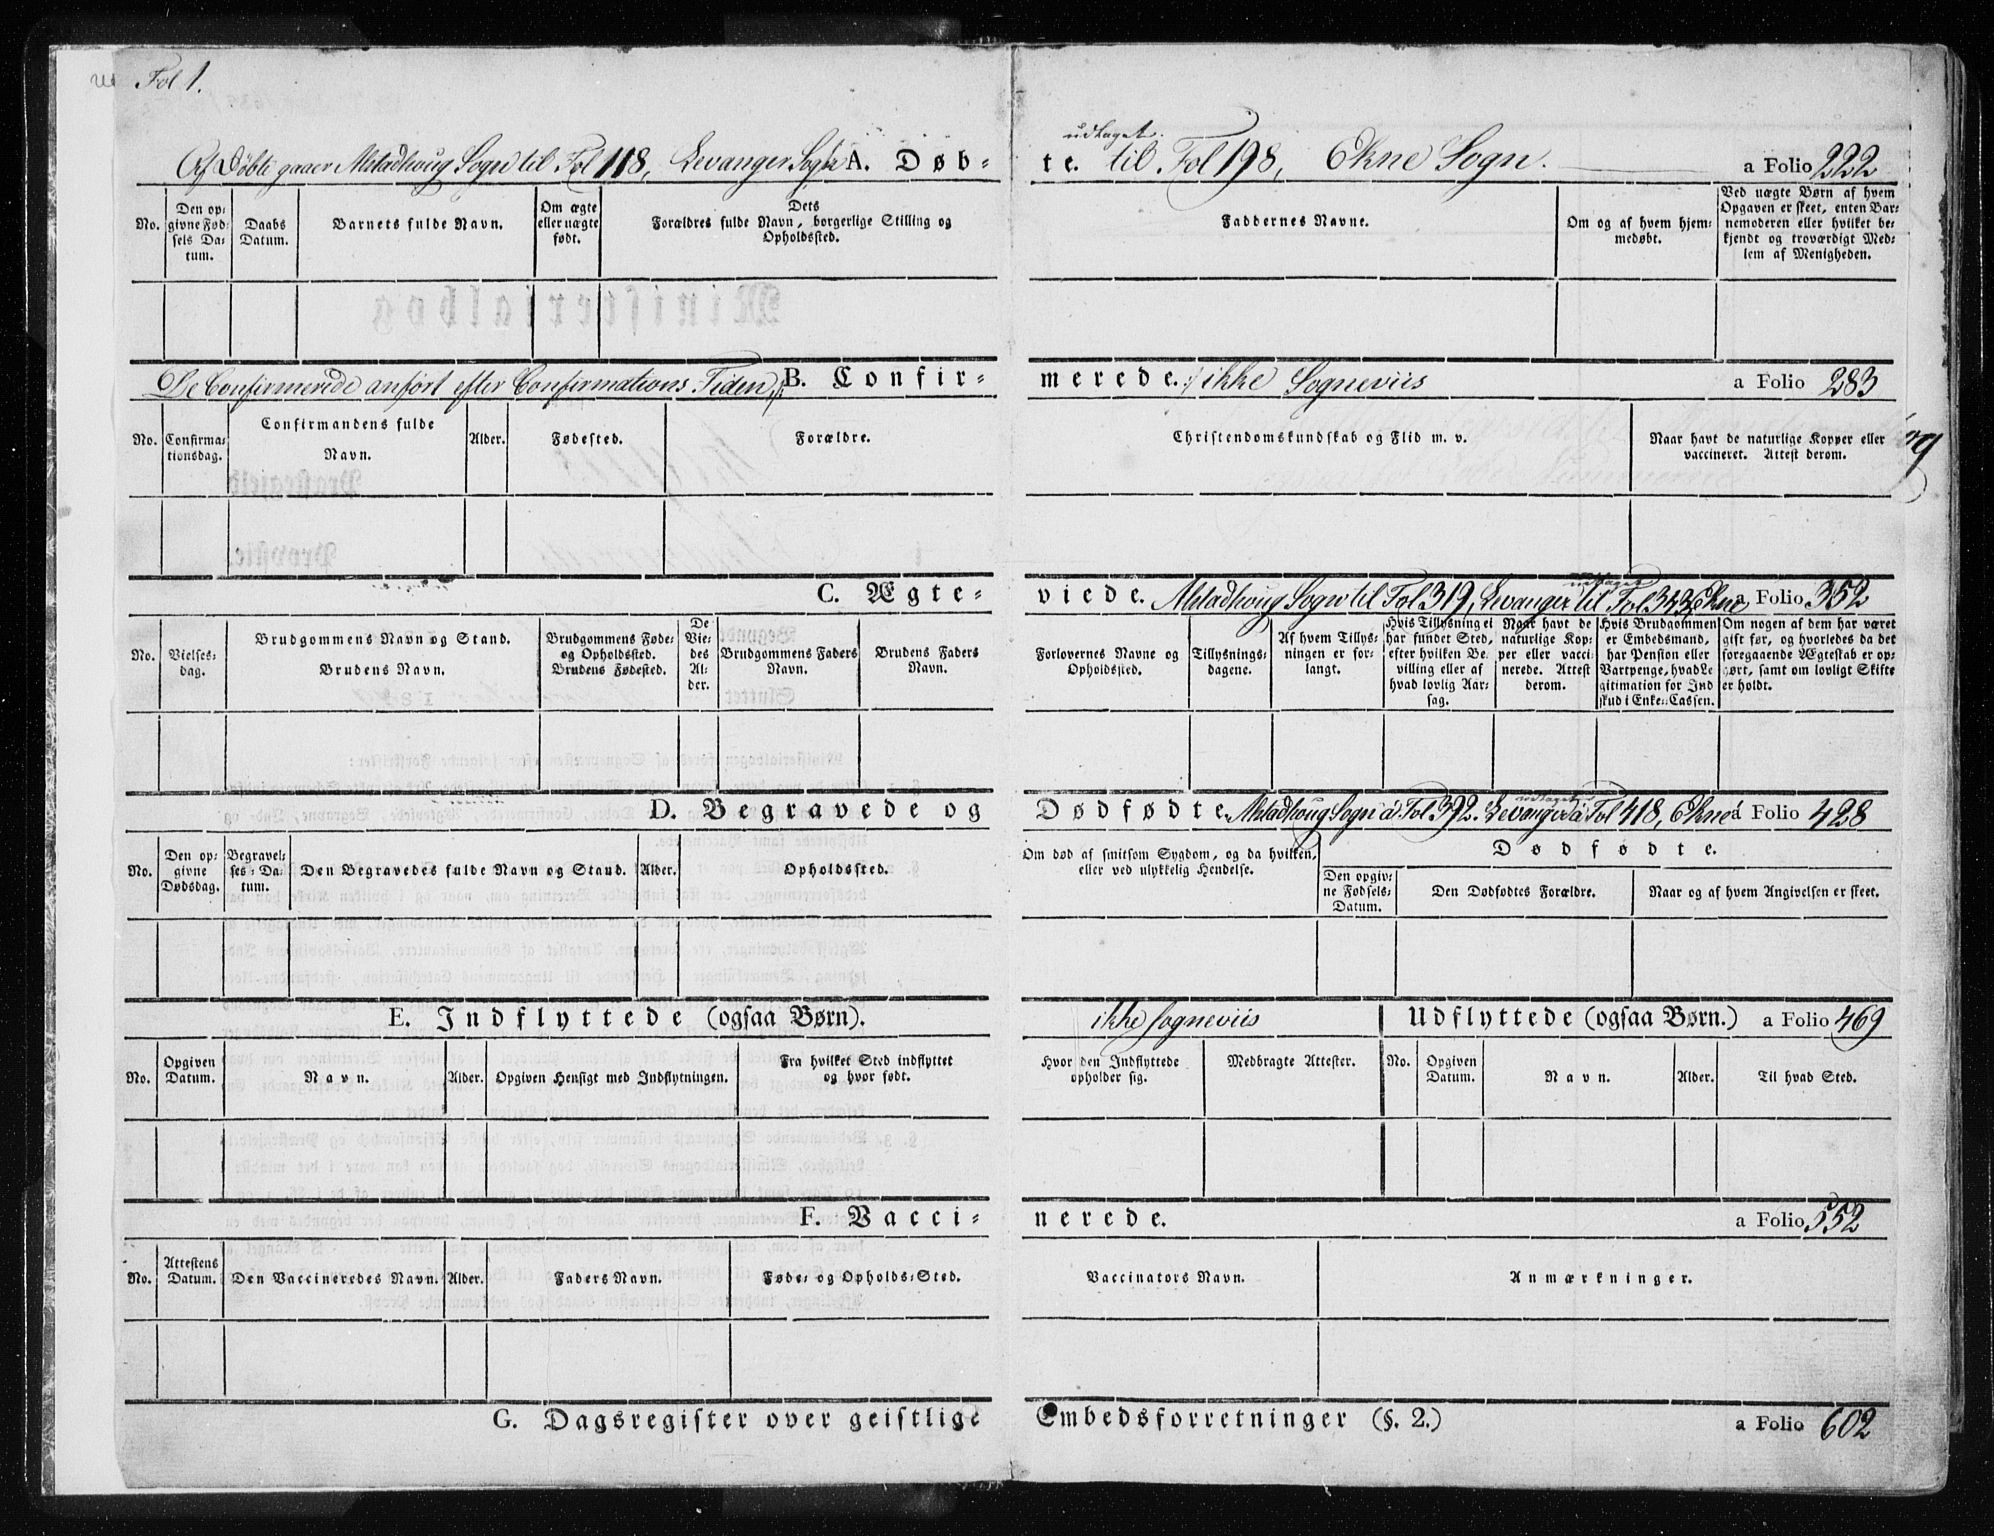 Fol 1.
Af Døbte gaaer Alstadhoug Sogn til Fol 118, Levanger Sogn A. Døb- te. udtaget til Fol 198, Ekne Sogn. a Folio 222
No.
Den op: givne Fød: sels Da: tum.
Daabs Datum.
Barnets fulde Navn.
Om ægte eller uægte født.
Dets Forældres fulde Navn, borgerlige Stilling og Opholdssted.
Faddernes Navne.
Om og af hvem hjem: medøbt.
Ved uægte Børn af hvem Opgaven er skeet, enten Bar: nemoderen eller hvilket be: kjendt og troværdigt Med: lem af Menigheden.
De Confirmerede anført efter Confirmations Tiden, B. Confir- merede. ikke Sogneviis a Folio 283
No.
Confirma: tionsdag.
Confirmandens fulde Navn.
Alder.
Fødested.
Forældre.
Christendomskundskab og Flid m. v.
Naar havt de naturlige Kopper eller vaccineret. Attest derom.
C. Ægte- viede. Alstadhoug Sogn til Fol 319, Levanger udtaget til Fol 343 Ekne a Folio 352
No.
Vielses: dag.
Brudgommens Navn og Stand.
Brudens Navn.
Brudgommens Føde: og Opholdssted.
Brudens Fødested.
De Vie: des Al: der.
Brudgommens Faders Navn.
Brudens Faders Navn.
Forlovernes Navne og Opholdssted.
Tillysnings: dagene.
Af hvem Tillys: ningen er for: langt.
Hvis Tillysning ei har fundet Sted, efter hvilken Be: villing eller af hvad lovlig Aar: sag.
Naar havt de naturlige Kop: per eller vacci: nerede. Attest derom.
Hvis Brudgommen er Embedsmand, har Pension eller Vartpenge, hvad Le gitimation for Ind skud i Enke: Cassen.
Om nogen af dem har været gift før, og hvorledes da det foregaaende Ægteskab er op: hørt, samt om lovligt Skifte er holdt.
D. Begravede og Dødfødte. Alstadhoug Sogn a Fol 392. Levanger udtaget a Fol 418, Ekne á Folio 428
No.
Den op: givne Dødsdag.
Begravel: ses: Da: tum.
Den Begravedes fulde Navn og Stand.
Alder.
Opholdssted.
Om død af smitsom Sygdom, og da hvilken, eller ved ulykkelig Hendelse.
Dødfødte.
Den opgiv: ne Fødsels: Datum.
Den Dødfødtes Forældre.
Naar og af hvem Angivelsen er skeet.
E. Indflyttede (ogsaa Børn). ikke sogneviis Udflyttede (ogsaa Børn.) a Folio 469
No.
Opgiven Datum.
Navn.
Alder.
Opgiven Hensigt med Indflytningen.
Fra hvilket Sted indflyttet og hvor født.
Hvor den Indflyttede opholder sig.
Medbragte Attester.
No.
Opgiven Datum.
Navn.
Alder.
Til hvad Sted.
F. Vacci- nerede. a Folio 552
No.
Attestens Datum.
Den Vaccineredes Navn.
Alder.
Faders Navn.
Føde: og Opholds: Sted.
Vaccinators Navn.
Anmærkninger.
G. Dagsregister over geistlige Embedsforretninger (§. 2.) a Folio 602